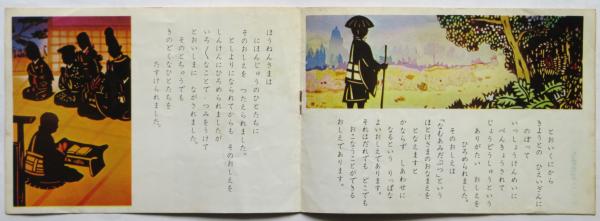 とおいくにから
きょうとの ひえいざんに
のぼって
いっしょうけんめいに
べんきょうされて
じょうどしゅうという
ありがたい おしえを
ひろめられました。
そのおしえは
「なむあみだぶつ」という
ほとけさまのおなまえを
となえますと
かならず しあわせに
なるという りっぱな
よいおしえであります。
それはだれでも どこでも
おこなうことができる
おしえであります。
ほうねんさまは
にほんじゅうのひとたちに
そのおしえを つたえられました。
としよりになられてからも そのおしえを
しんけんにひろめられましたが
いろ〱なことで つみをうけて
とおいしまに ながされました。
そのとちゅうでも
きのどくなひとたちを
たすけられました。